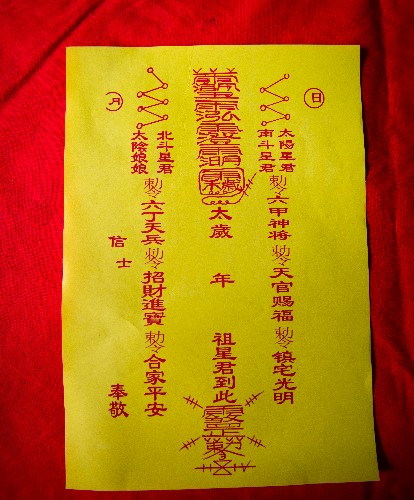 日
太陽星君
南斗星君
勅令六甲神将勅令天官赐福勅令镇宅光明
太歲 年 祖星君到此
月
北斗星君
太陰娘娘
勅令六丁天兵勅令招財進寶勅令合家平安
信士 奉敬